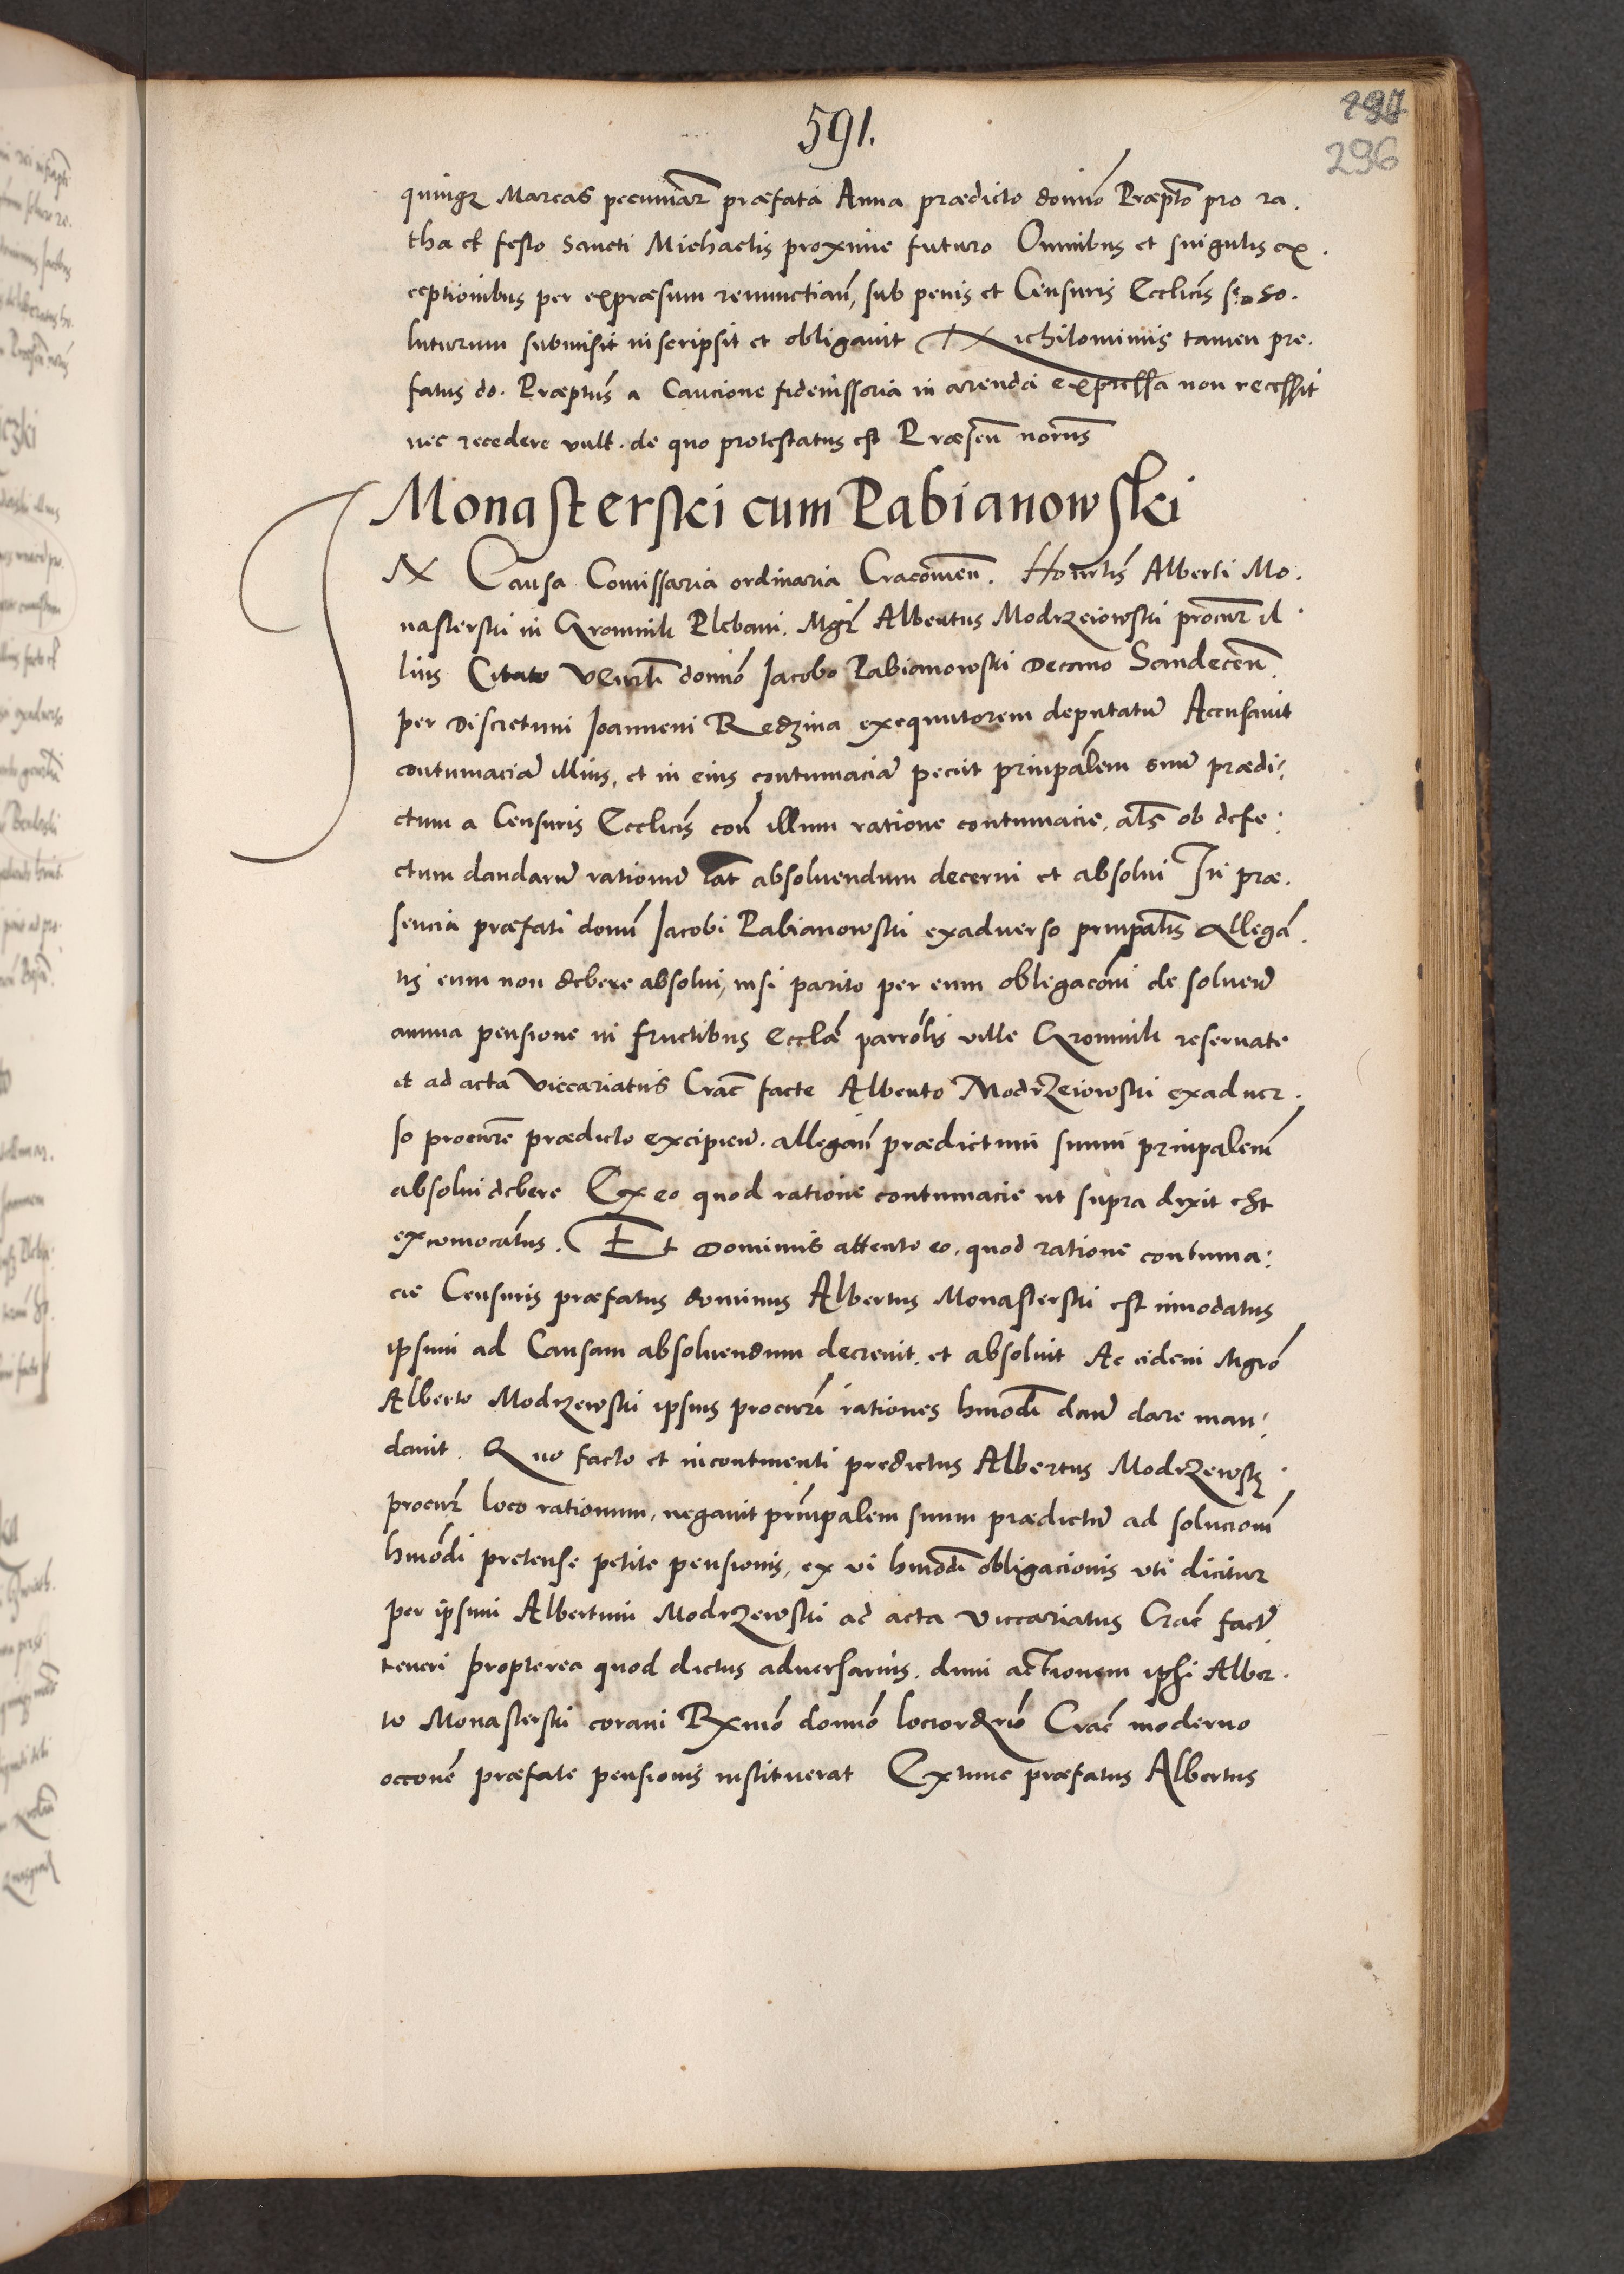 591.
297
296
quinq3 Marcas pecuniar̄ præfata Anna prædicto domīo Præpt̄o pro ra.
tha et festo Sancti Michaelis proxime futuro Omnibus et singulis ex.
ceptionibus per expræsum renunctiań, sub penis et Censuris Ecclicīs se so.
luturum submisit inscripsit et obligavit Nichilominus tamen pre.
fatus do. Præptūs a Caucione fideiussoria in arenda expressa non recessit
nec recedere vult. de quo protestatus est Præseñ notrīs
Monasterski cum Pabianowski
IN Causa Comissaria ordinaria Cracovieñ. Honrlīs Alberti Mo.
nasterski in Gromnik Plebani. Mgr̄ Albertus Modrzeiowski procur̄ il
lius Citato Venrlī domīo Iacobo Pabianowski Decano Sandeceñ.
per Discretum Ioannem Redzina exequutorem deputatū Accusavit
contumaciā illius, et in eius contumaciā peciit prinpālem suū prædi:
ctum a Censuris Ecclicīs coñ illum ratione contumacie, als̄ ob defe:
ctum dandarū rationū lat̄ absolvendum decerni et absolvi In præ.
sencia præfati domī Iacobi Pabianowski exadverso prinpālīs allegā.
tis eum non debere absolvi, nisi parito per eum oblegacōni de solvend̄
annua pensione in fructibus Ecclǣ parrōlis ville Gromnik reservate
et ad acta Viccariatus Crac̄ facte Alberto Modrzeiowski exadver.
so procurē prædicto excipień. allegań prædictum suum prinpalem̄
absolvi debere Ex eo quod ratione contumacie ut supra dixit est
excomōcātus. Et Dominus attento eo, quod ratione contuma:
cie Censuris præfatus dominus Albertus Monasterski est innodatus
ipsum ad Causam absolvendum decrevit. et absolvit Ac eidem Mgrō
Alberto Modrzewski ipsius procurī rationes hmōdī dand̄ dare man:
davit. Quo facto et incontinenti predictus Albertus Modrzewsk̨
procur̄ loco rationum, negavit prīnpalem suum prædictū ad solucionē
hmōdi pretense petite pensionis, ex vi hmōdī obligacionis uti dicitur
per ipsum Albertum Modrzewski ad acta Viccariatus Crac̄ fact̄
teneri propterea quod dictus adversarius. dum actionem ipsi Alber.
to Monasterski coram Rxmō domīo locīordriō Crac̄ moderno
occonē præfate pensionis instituerat Extunc præfatus Albertus